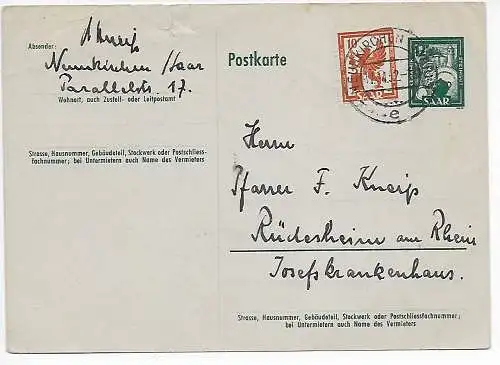 Absender:
Kneip
Neunkirchen/Saar
Parallelstr. 17.
Wohnort, auch Zustell- oder Leitpostamt
Strasse, Hausnummer, Gebäudeteil, Stockwerk oder Postschliess-
fachnummer; bei Untermietern auch Name des Vermieters
Postkarte
10
SAAR
NEUNKIRCHEN
e
SAAR
Herrn
Pfarrer F. Kneip
Rüdesheim am Rhein
Josefskrankenhaus.
Strasse, Hausnummer, Gebäudeteil, Stockwerk oder Postschliessfachnummer;
bei Untermietern auch Name des Vermieters